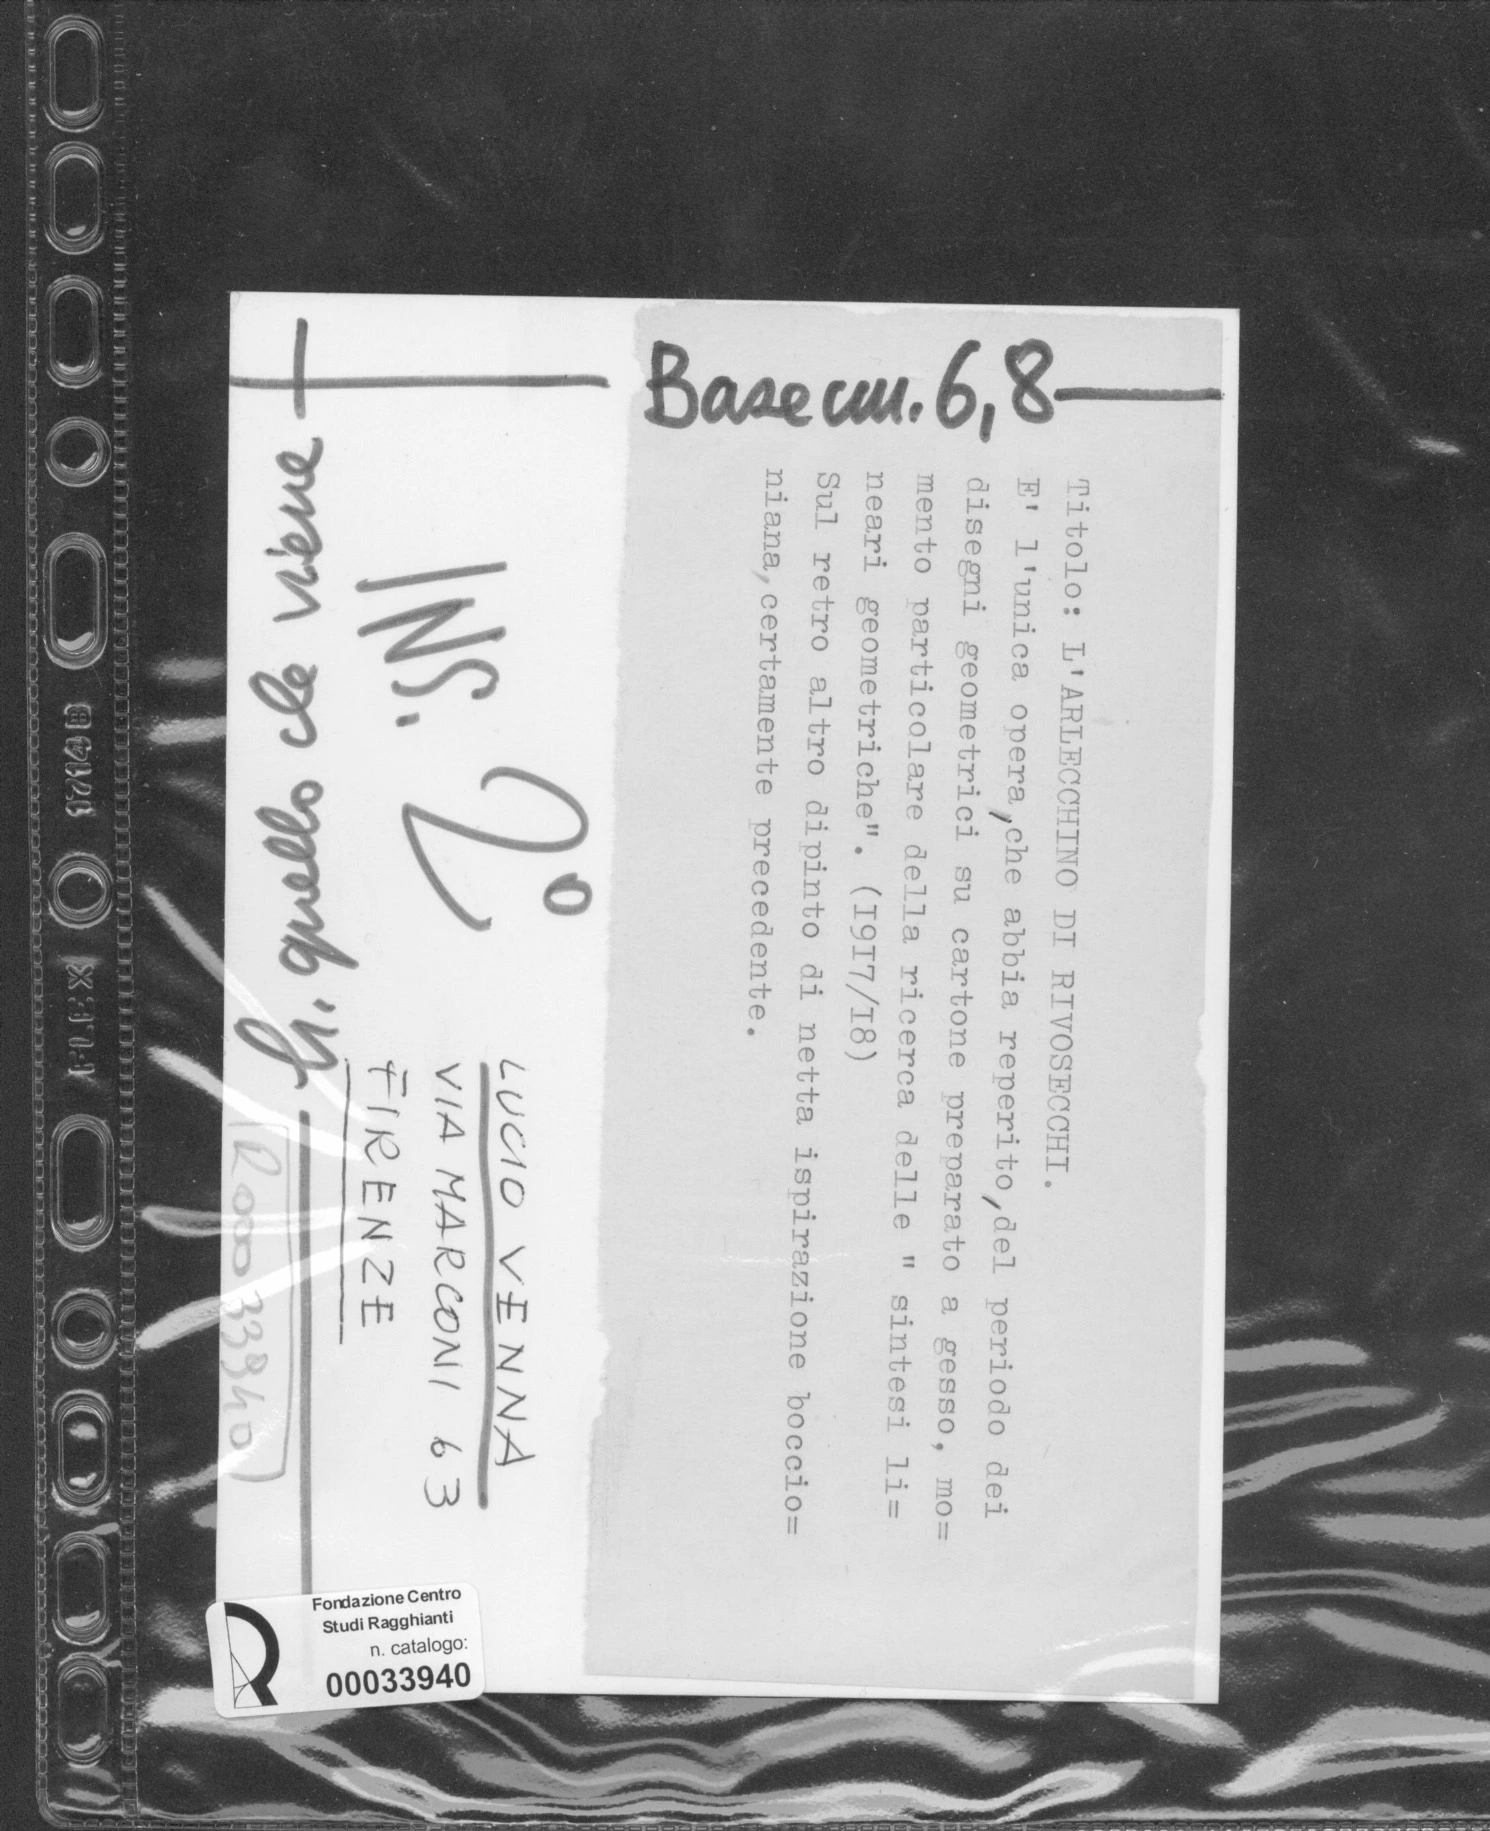 Base cm. 6,8
Titolo: L'ARLECCHINO DI RIVOSECCHI.
E' l'unica opera,che abbia reperito,del periodo dei
disegni geometrici su cartone preparato a gesso, mo=
mento particolare della ricerca delle " sintesi li=
neari geometriche". (I9I7/I8)
Sul retro altro dipinto di netta ispirazione boccio=
niana,certamente precedente.
INS. 2º
LUCIO VENNA
VIA MARCONI 63
FIRENZE
h. quello che viene
R00033940
Fondazione Centro
Studi Ragghianti
n. catalogo:
00033940